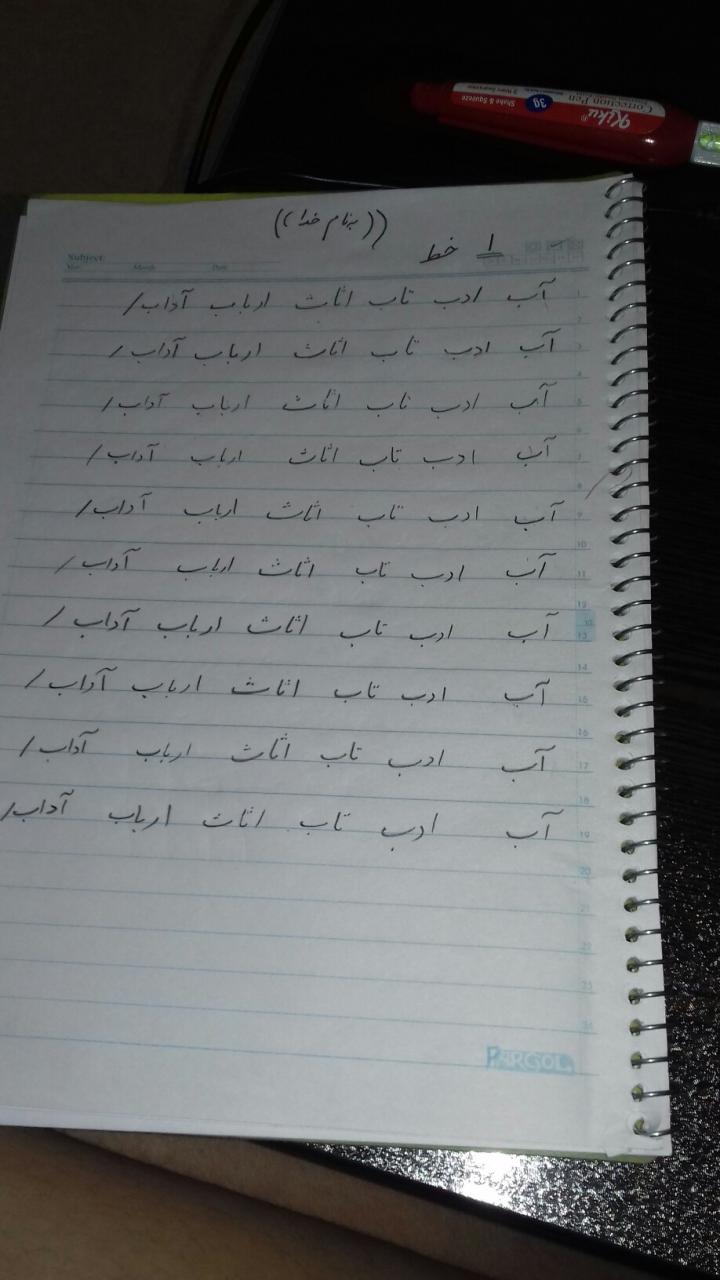 Kiku®
Correction Pen
3g
Shake & Squeeze
((بنام خدا))
۱ خط
Subject:
No: Month Date
آب ادب تاب اثاث ارباب آداب/
آب ادب تاب اثاث ارباب آداب/
آب ادب تاب اثاث ارباب آداب/
آب ادب تاب اثاث ارباب آداب/
آب ادب تاب اثاث ارباب آداب/
آب ادب تاب اثاث ارباب آداب/
آب ادب تاب اثاث ارباب آداب/
آب ادب تاب اثاث ارباب آداب/
آب ادب تاب اثاث ارباب آداب/
آب ادب تاب اثاث ارباب آداب/
PARGOL